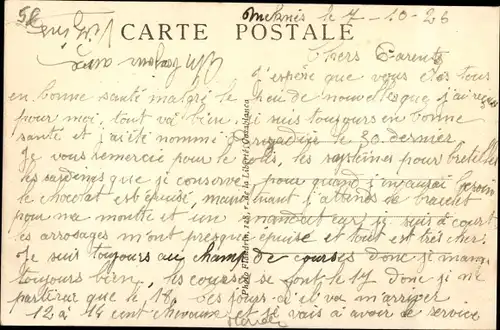 CARTE POSTALE
Meknès le 7-10-26
Chers Parents
J'espère que vous êtes tous
en bonne santé malgré le peu de nouvelles que j'ai reçus
pour moi, tout va bien, je suis toujours en bonne
santé et j'ai été nommé Brigadier le 30 dernier
Je vous remercie pour le colis, les systèmes pour bretelles
les sardines que je conserve pour quand j'en aurai besoin
le chocolat est épuisé, maintenant j'attends le bracelet
pour ma montre et un mandat car je suis à court
les arrosages m'ont presque épuisé et tout est très cher
Je suis toujours au champ de courses donc je
toujours bien, les courses se font le 17 donc je ne
partirai que le 18
12 à 14 cent chevaux et je vais avoir de service
Photo Flandrin, rue de la Liberté, Casablanca